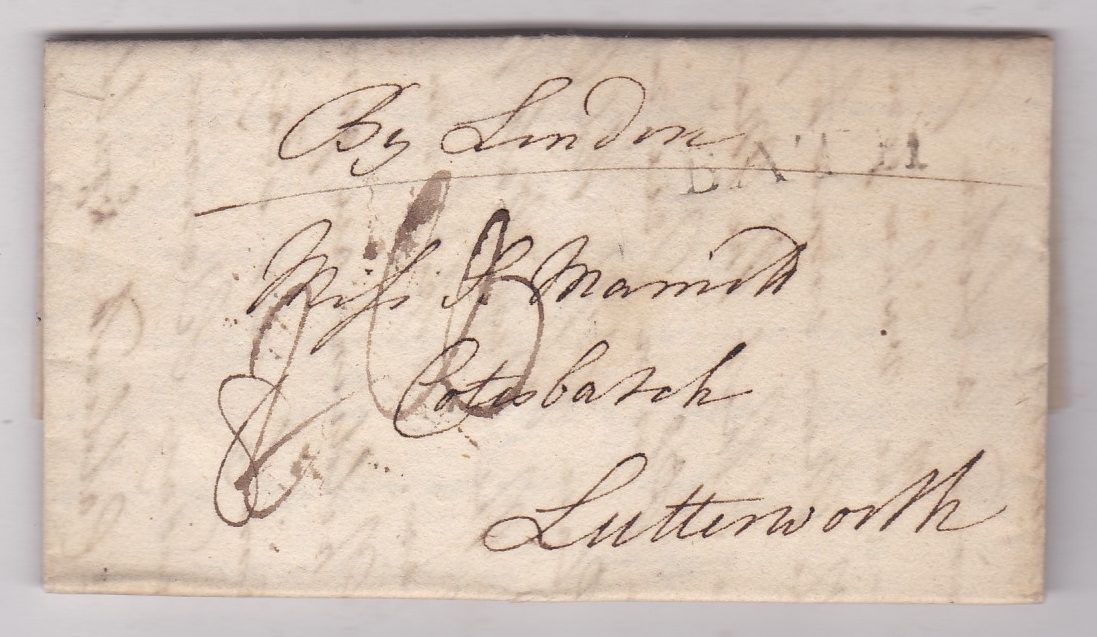 By London
BATH
Miss S. Marriott
Cotesbatch
Lutterworth